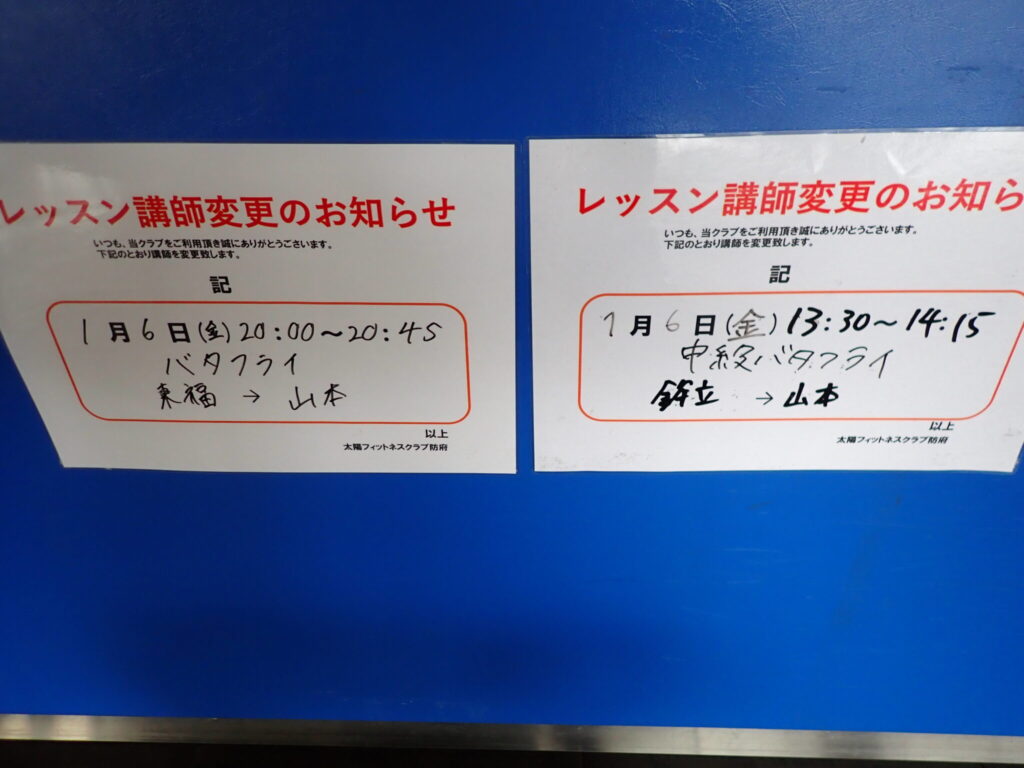 レッスン講師変更のお知らせ
いつも、当クラブをご利用頂き誠にありがとうございます。
下記のとおり講師を変更致します。
記
1月6日(金)20:00～20:45
バタフライ
来福 → 山本
以上
太陽フィットネスクラブ防府
レッスン講師変更のお知ら
いつも、当クラブをご利用頂き誠にありがとうございます。
下記のとおり講師を変更致します。
記
1月6日(金)13:30～14:15
中級バタフライ
→山本
以上
太陽フィットネスクラブ防府